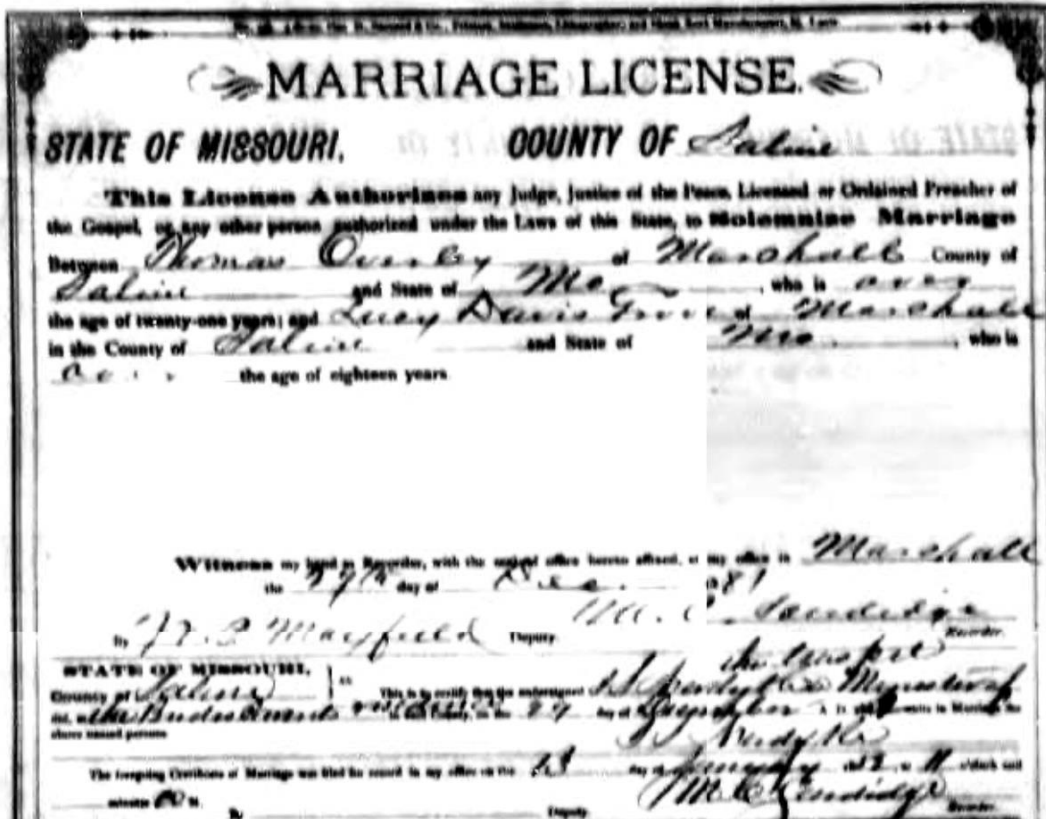 MARRIAGE LICENSE.
STATE OF MISSOURI. COUNTY OF Saline
This License Authorizes any Judge, Justice of the Peace, Licensed or Ordained Preacher of
the Gospel, or any other person authorized under the Laws of this State, to Solemnize Marriage
Between Thomas of Marshall County of
Saline and State of Mo , who is over
the age of twenty-one years; and Lucy Davis of Marshall
in the County of Saline and State of Mo. , who is
over the age of eighteen years.
Witness my hand as Recorder, with the seal of office hereto affixed, at my office in Marshall
the 29th day of Dec. 1881
By Mayfield Deputy. M. C. Sandidge Recorder.
STATE OF MISSOURI,
County of Saline ss. This is to certify that the undersigned Minister of
did, at the Brides Parents residence in said County, on the 29 day of December A. D. unite in Marriage the
above named persons.
The foregoing Certificate of Marriage was filed for record in my office on the 13 day of January 1882 at 11 o'clock and
minutes M. M. C. Sandidge
By Deputy. Recorder.